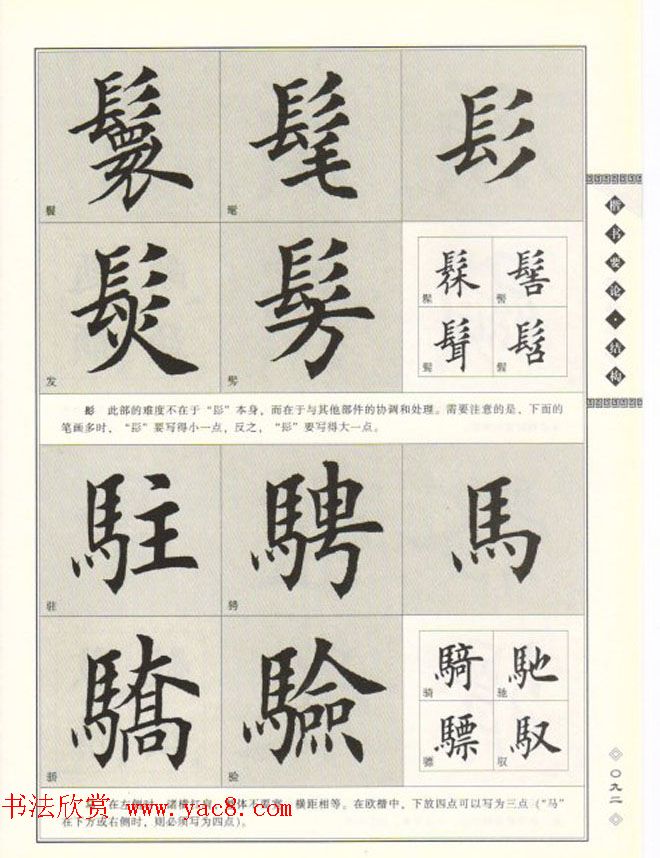 鬟 髦 髟
鬟 髦
髮 髣
发 髣
髹 髻
髫
髟 此部的难度不在于“髟”本身，而在于与其他部件的协调和处理。需要注意的是，下面的
笔画多时，“髟”要写得小一点，反之，“髟”要写得大一点。
駐 騁 馬
驻 骋
驕 驗
骄 验
騎 馳
骑 驰
驃 馭
骠 驭
在左侧时，诸横扛肩，体不要宽，横距相等。在欧楷中，下放四点可以写为三点（“马”
在下方或右侧时，则必须写为四点）。
书法欣赏 www.yac8.com
楷书要论·结构
〇九二